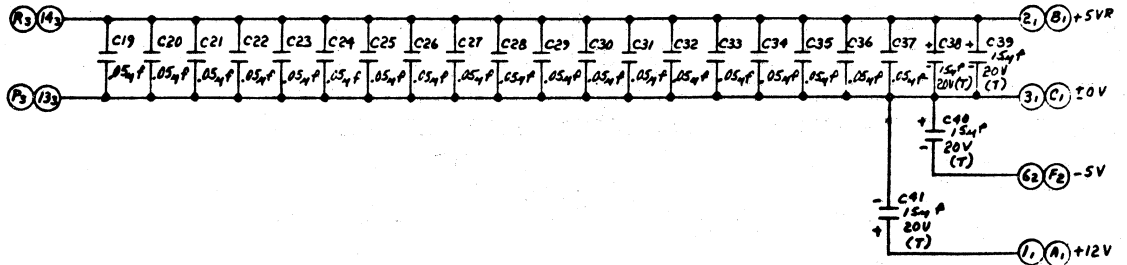 R3 143 2, B, +5VR
C19 C20 C21 C22 C23 C24 C25 C26 C27 C28 C29 C30 C31 C32 C33 C34 C35 C36 C37 +C38 +C39
.05μf .05μf .05μf .05μf .05μf .05μf .05μf .05μf .05μf .05μf .05μf .05μf .05μf .05μf .05μf .05μf .05μf .05μf .05μf 15μf 15μf
20V(T) 20V
(T)
P3 133 3, C, ±0V
+ C40
15μf
- 20V
(T)
62 F2 -5V
- C41
15μf
+ 20V
(T)
1, A, +12V